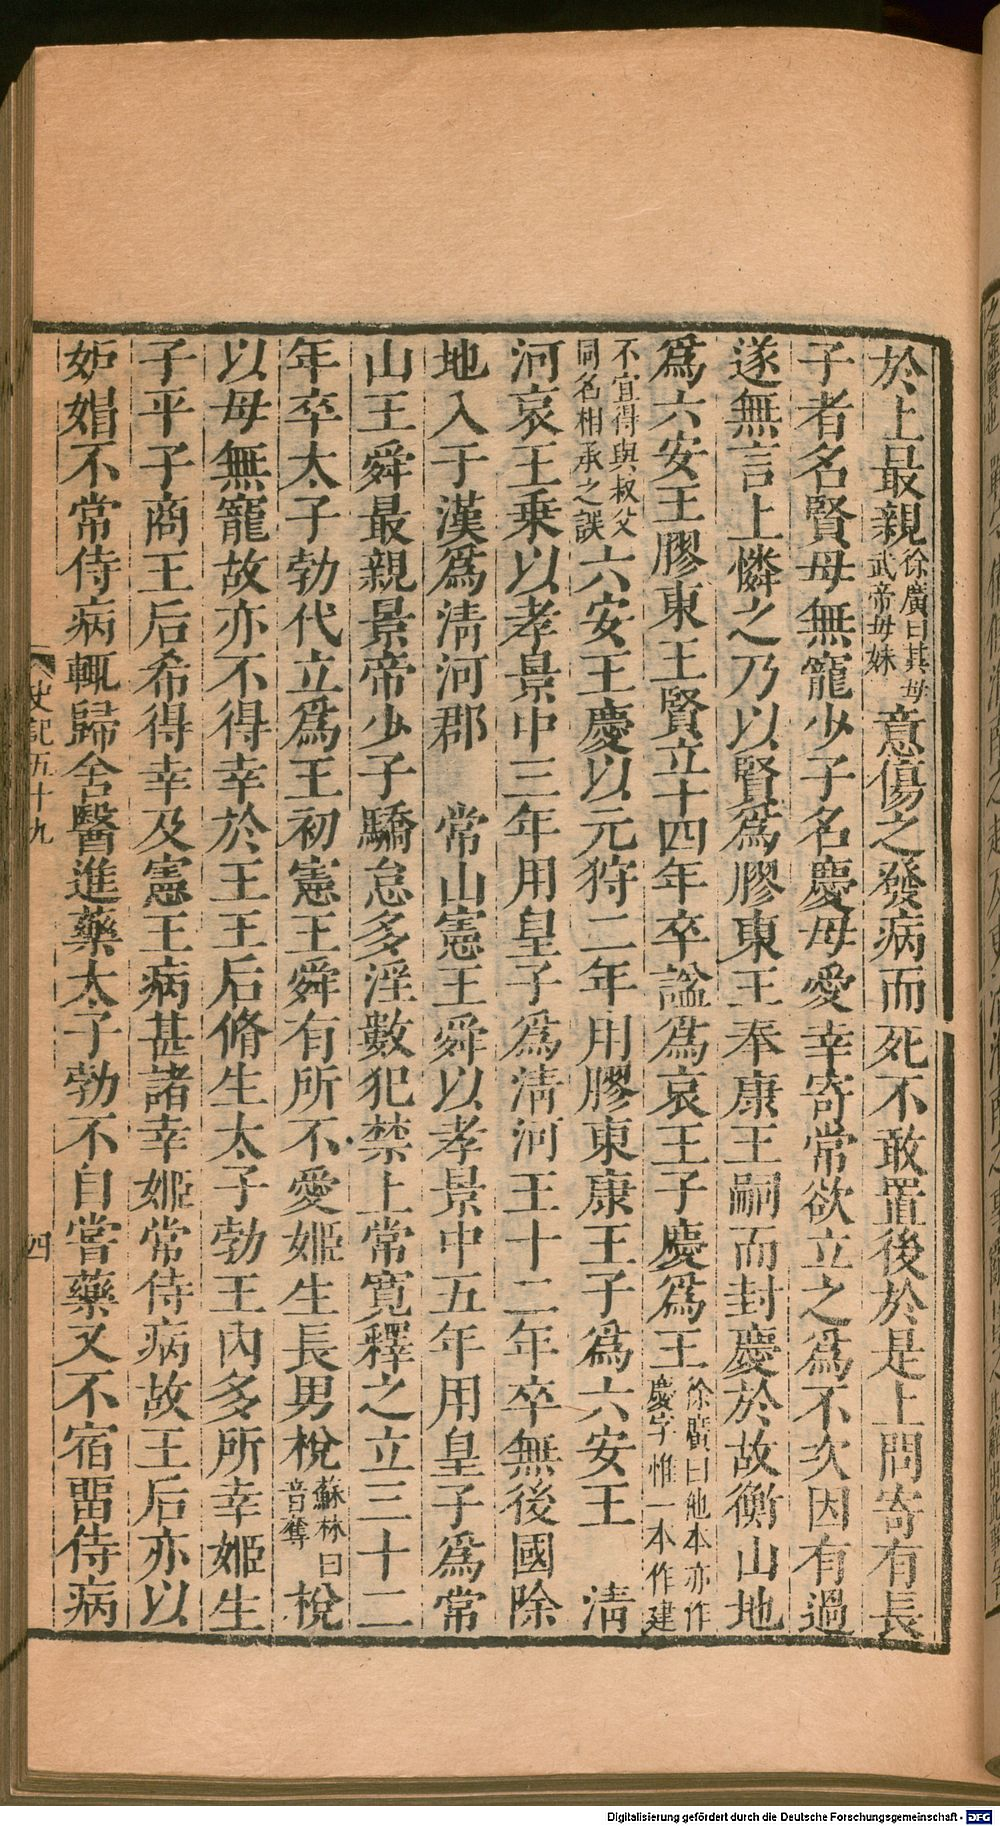 於上最親徐廣曰其母武帝母妹意傷之發病而死不敢置後於是上問寄有長
子者名賢母無寵少子名慶母愛幸寄常欲立之爲不次因有過
遂無言上憐之乃以賢爲膠東王奉康王嗣而封慶於故衡山地
爲六安王膠東王賢立十四年卒諡爲哀王子慶爲王徐廣曰他本亦作慶字惟一本作建
不宜得與叔父同名相承之誤六安王慶以元狩二年用膠東康王子爲六安王　清
河哀王乗以孝景中三年用皇子爲清河王十二年卒無後國除
地入于漢爲清河郡　常山憲王舜以孝景中五年用皇子爲常
山王舜最親景帝少子驕怠多淫數犯禁上常寛釋之立三十二
年卒太子勃代立爲王初憲王舜有所不愛姬生長男梲蘇林曰音奪梲
以母無寵故亦不得幸於王王后脩生太子勃王內多所幸姬生
子平子商王后希得幸及憲王病甚諸幸姬常侍病故王后亦以
妒媢不常侍病輒歸舍醫進藥太子勃不自嘗藥又不宿畱侍病
史記五十九　四
Digitalisierung gefördert durch die Deutsche Forschungsgemeinschaft - DFG